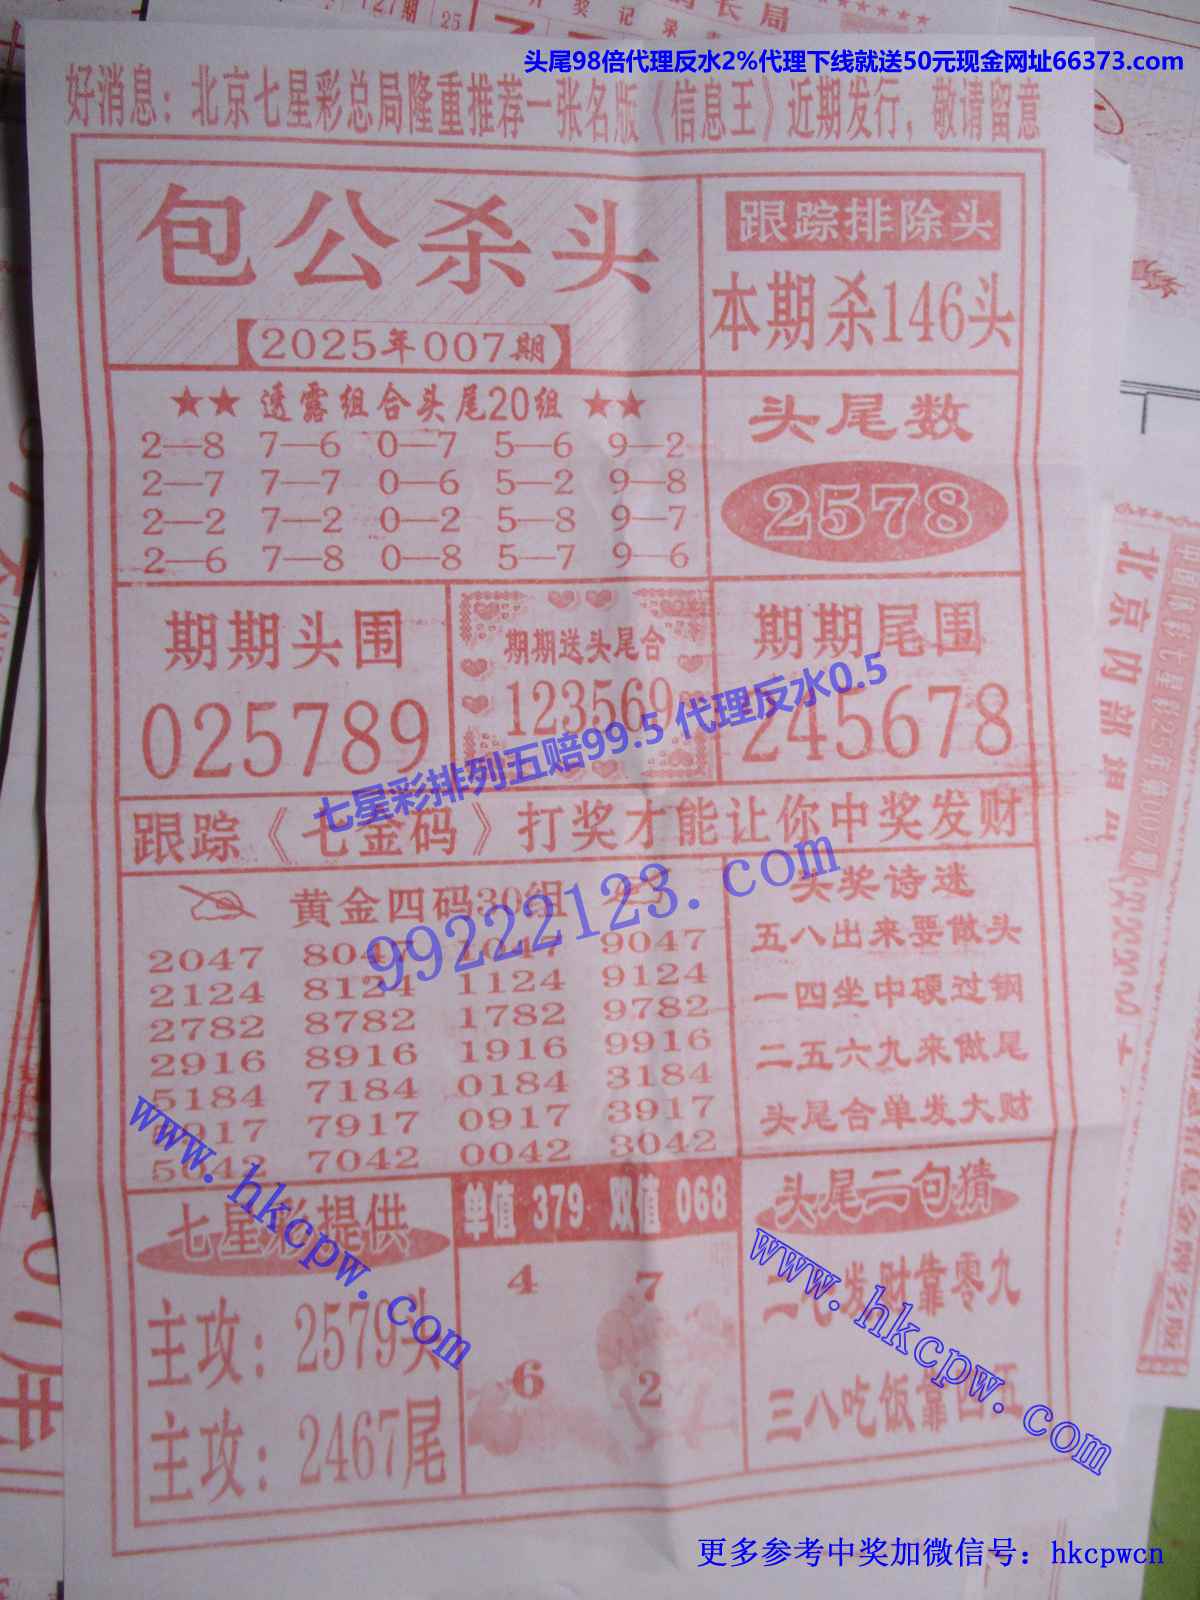 头尾98倍代理反水2%代理下线就送50元现金网址66373.com
好消息：北京七星彩总局隆重推荐一张名版《信息王》近期发行，敬请留意
包公杀头
【2025年007期】
跟踪排除头
本期杀146头
★★ 透露组合头尾20组 ★★
2—8 7—6 0—7 5—6 9—2
2—7 7—7 0—6 5—2 9—8
2—2 7—2 0—2 5—8 9—7
2—6 7—8 0—8 5—7 9—6
头尾数
2578
期期头围
025789
期期送头尾合
123569
期期尾围
245678
七星彩排列五赔99.5 代理反水0.5
跟踪《七金码》打奖才能让你中奖发财
99222123.com
黄金四码30组
2047 8047 1047 9047
2124 8124 1124 9124
2782 8782 1782 9782
2916 8916 1916 9916
5184 7184 0184 3184
917 7917 0917 3917
5042 7042 0042 3042
头奖诗迷
五八出来要做头
一四坐中硬过钢
二五六九来做尾
头尾合单发大财
www.hkcpw.com
七星彩提供
主攻：2579头
主攻：2467尾
单值 379 双值 068
4 7
6 2
头尾二句猜
二七发财靠零九
三八吃饭靠四五
www.hkcpw.com
更多参考中奖加微信号：hkcpwcn
北京内部